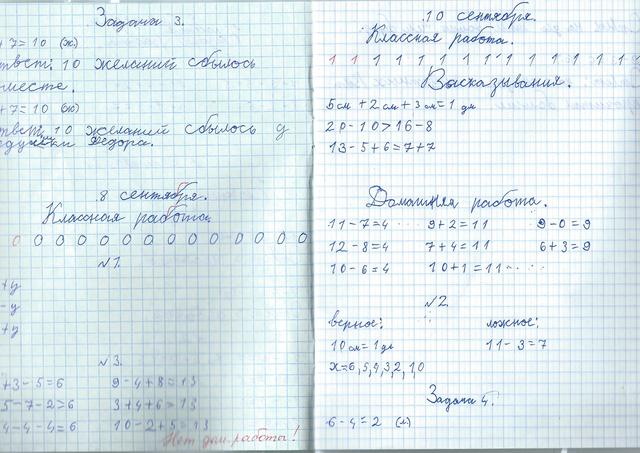 Задача 3.
+7=10 (ж)
твет: 10 желаний сбылось
месте.
+7=10 (ж)
твет: 10 желаний сбылось у
едушки Федора.
8 сентября.
Классная работа.
0 0 0 0 0 0 0 0 0 0 0 0 0 0
№1.
+у
-у
+у
№3.
+3-5=6 9-4+8=13
5-7-2=6 3+4+6=13
4-4-4=6 10-2+5=13
Нет дом. работы!
10 сентября.
Классная работа.
1 1 1 1 1 1 1 1 1 1 1 1 1 1 1
Высказывания.
5см+2см+3см=1 дм
20-10>16-8
13-5+6=7+7
Домашняя работа.
11-7=4 9+2=11 9-0=9
12-8=4 7+4=11 6+3=9
10-6=4 10+1=11
№2.
верное: ложное:
10см=1дм 11-3=7
х=6,5,4,3,2,1,0
Задача 4.
6-4=2 (л)